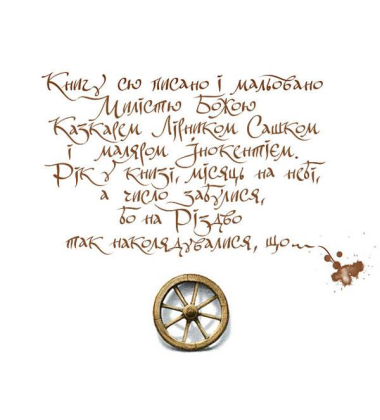 Книгу сю писано і мальовано
Милістю Божою
Казкарем Лірником Сашком
і маляром Інокентієм.
Рік у книзі, місяць на небі,
а число забулися,
бо на Різдво
так наколядувалися, що...